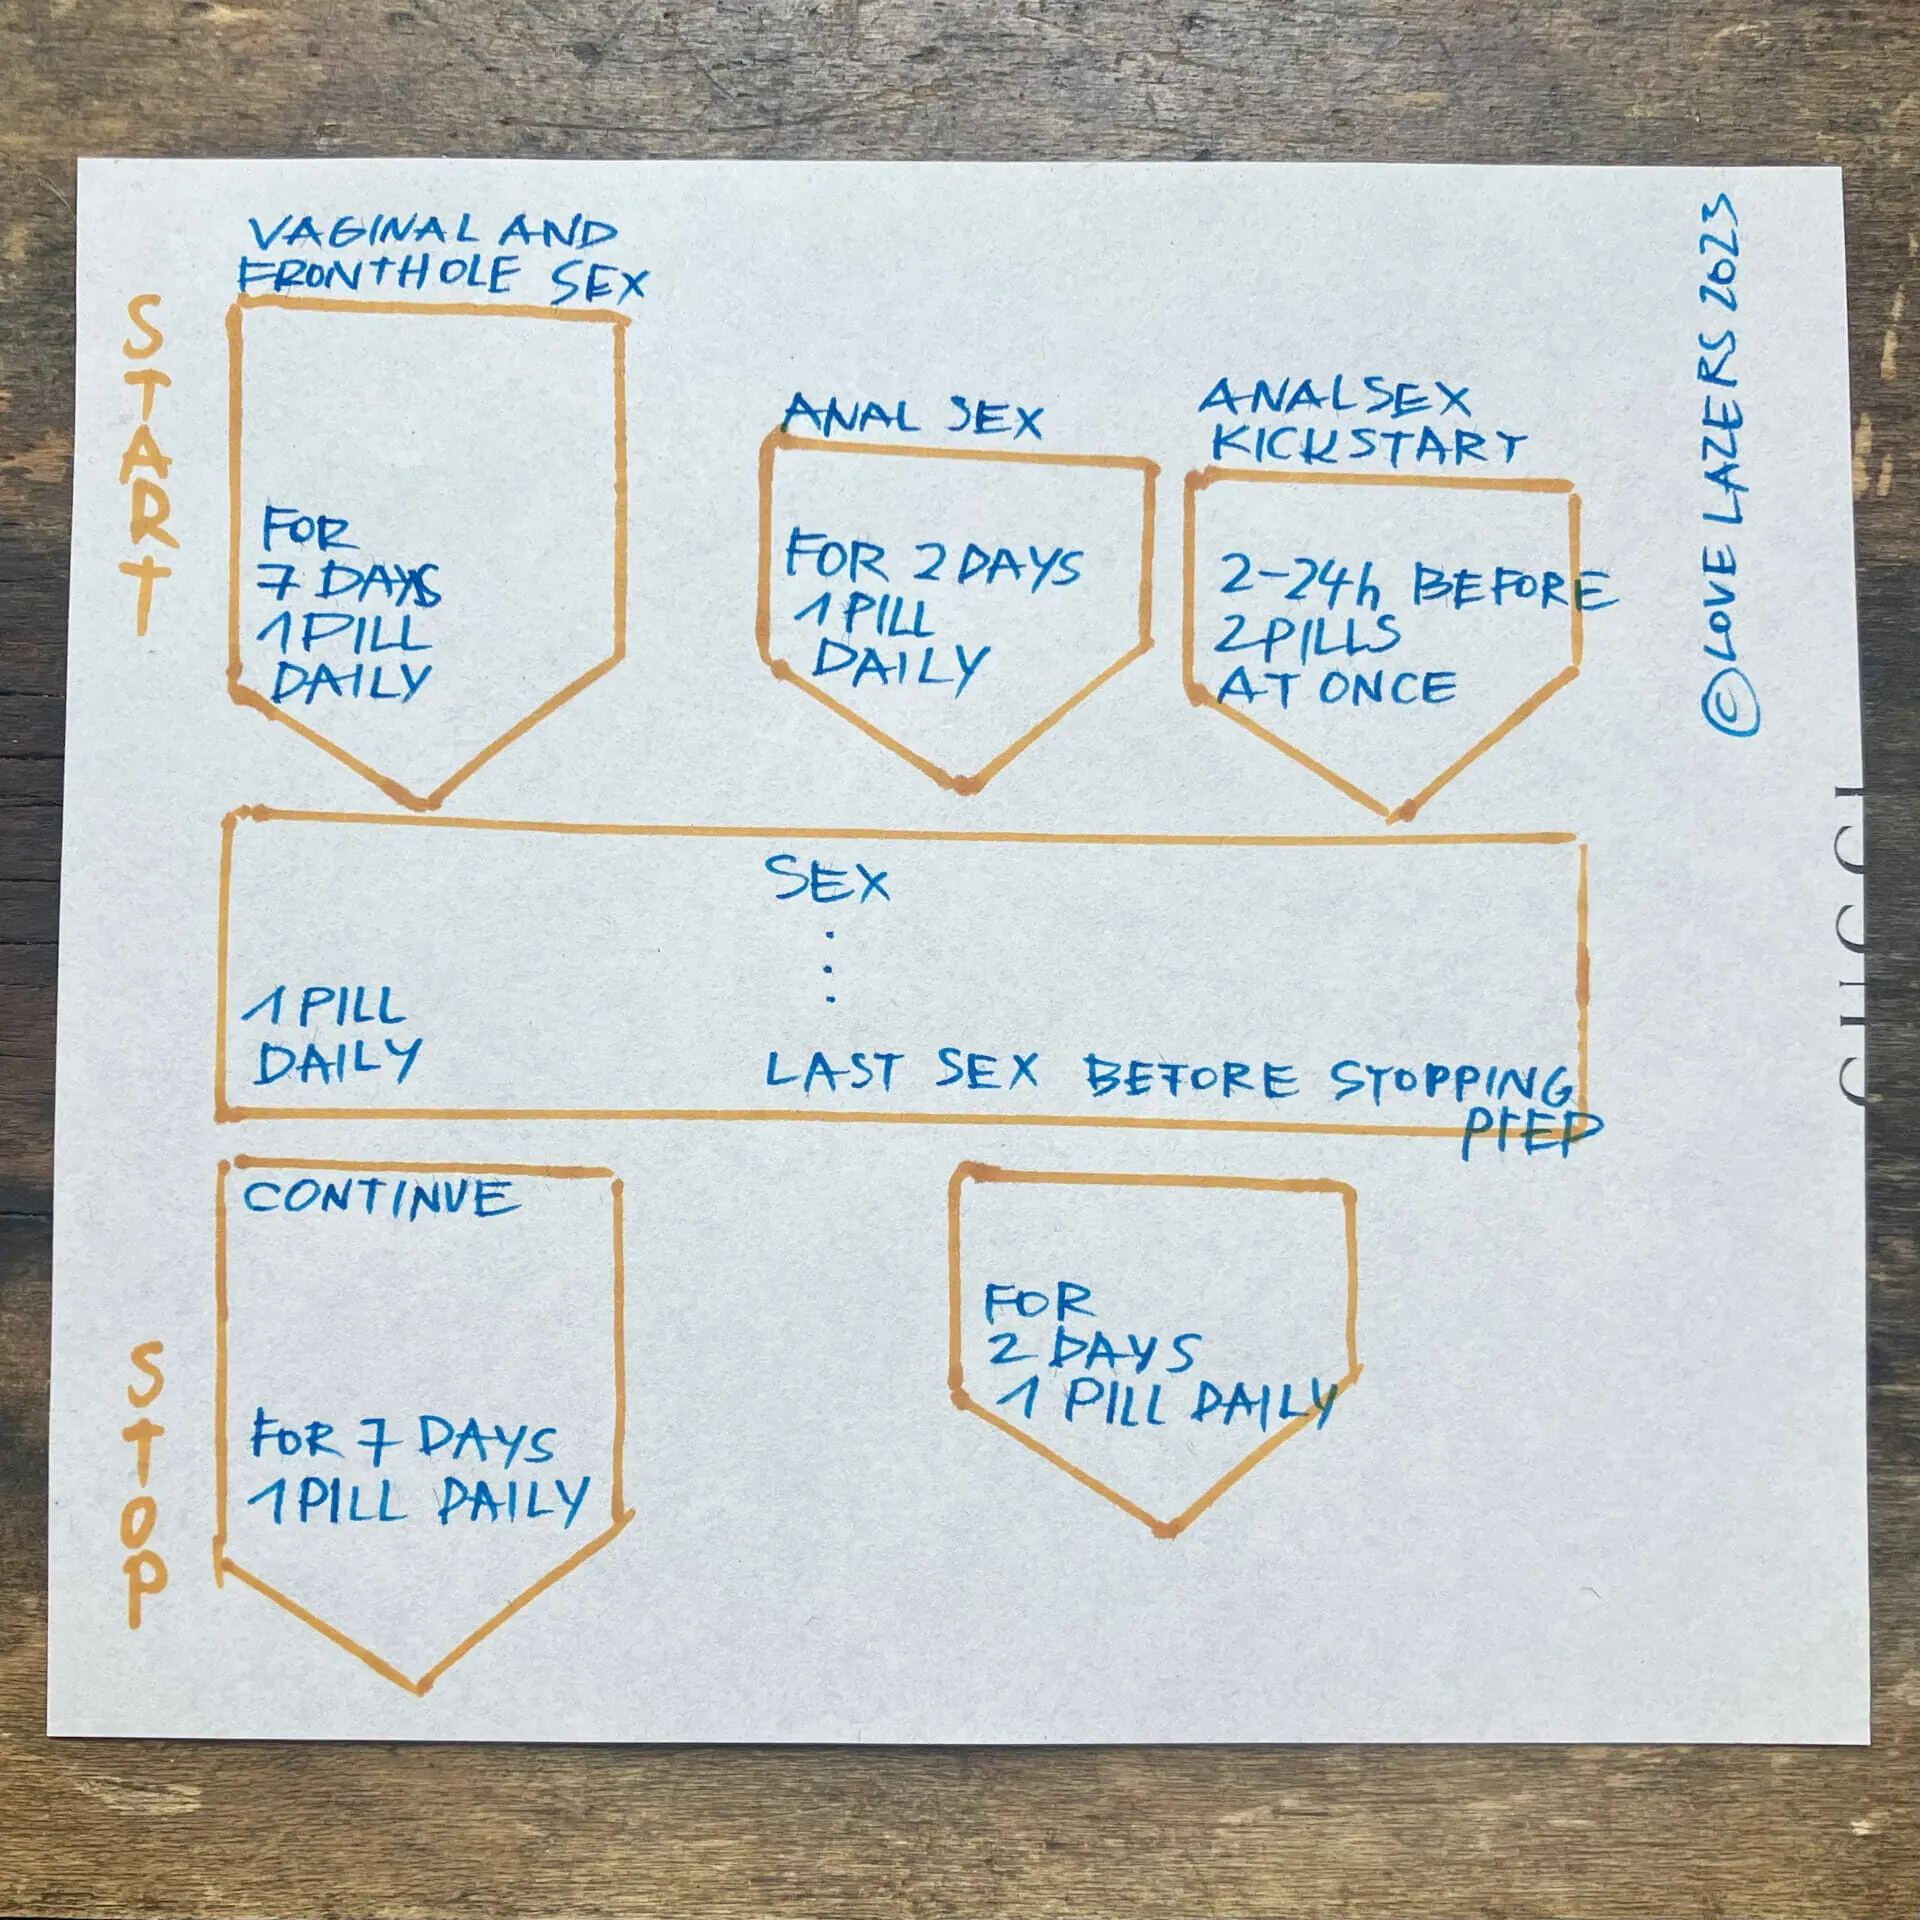 START
VAGINAL AND
FRONTHOLE SEX
FOR
7 DAYS
1 PILL
DAILY
ANAL SEX
FOR 2 DAYS
1 PILL
DAILY
ANALSEX
KICKSTART
2-24h BEFORE
2 PILLS
AT ONCE
© LOVE LAZERS 2023
SEX
1 PILL
DAILY
LAST SEX BEFORE STOPPING
PrEP
STOP
CONTINUE
FOR 7 DAYS
1 PILL DAILY
FOR
2 DAYS
1 PILL DAILY